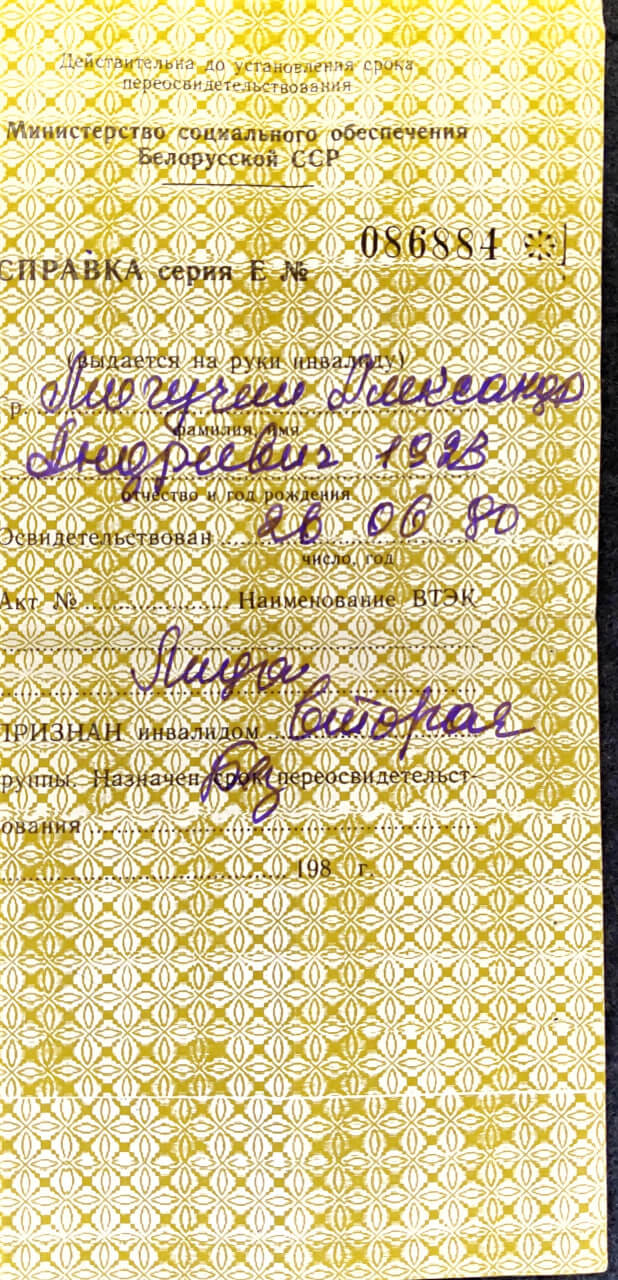 Действительна до установления срока
переосвидетельствования
Министерство социального обеспечения
Белорусской ССР
СПРАВКА серия Е № 086884
(выдается на руки инвалиду)
р. Могучий Александр
фамилия, имя
Андреевич 1923
отчество и год рождения
Освидетельствован 26 06 80
число, год
Акт № Наименование ВТЭК
Лида
ПРИЗНАН инвалидом вторая
руппы. Назначен срок переосвидетельст-
Без
ования
198 г.